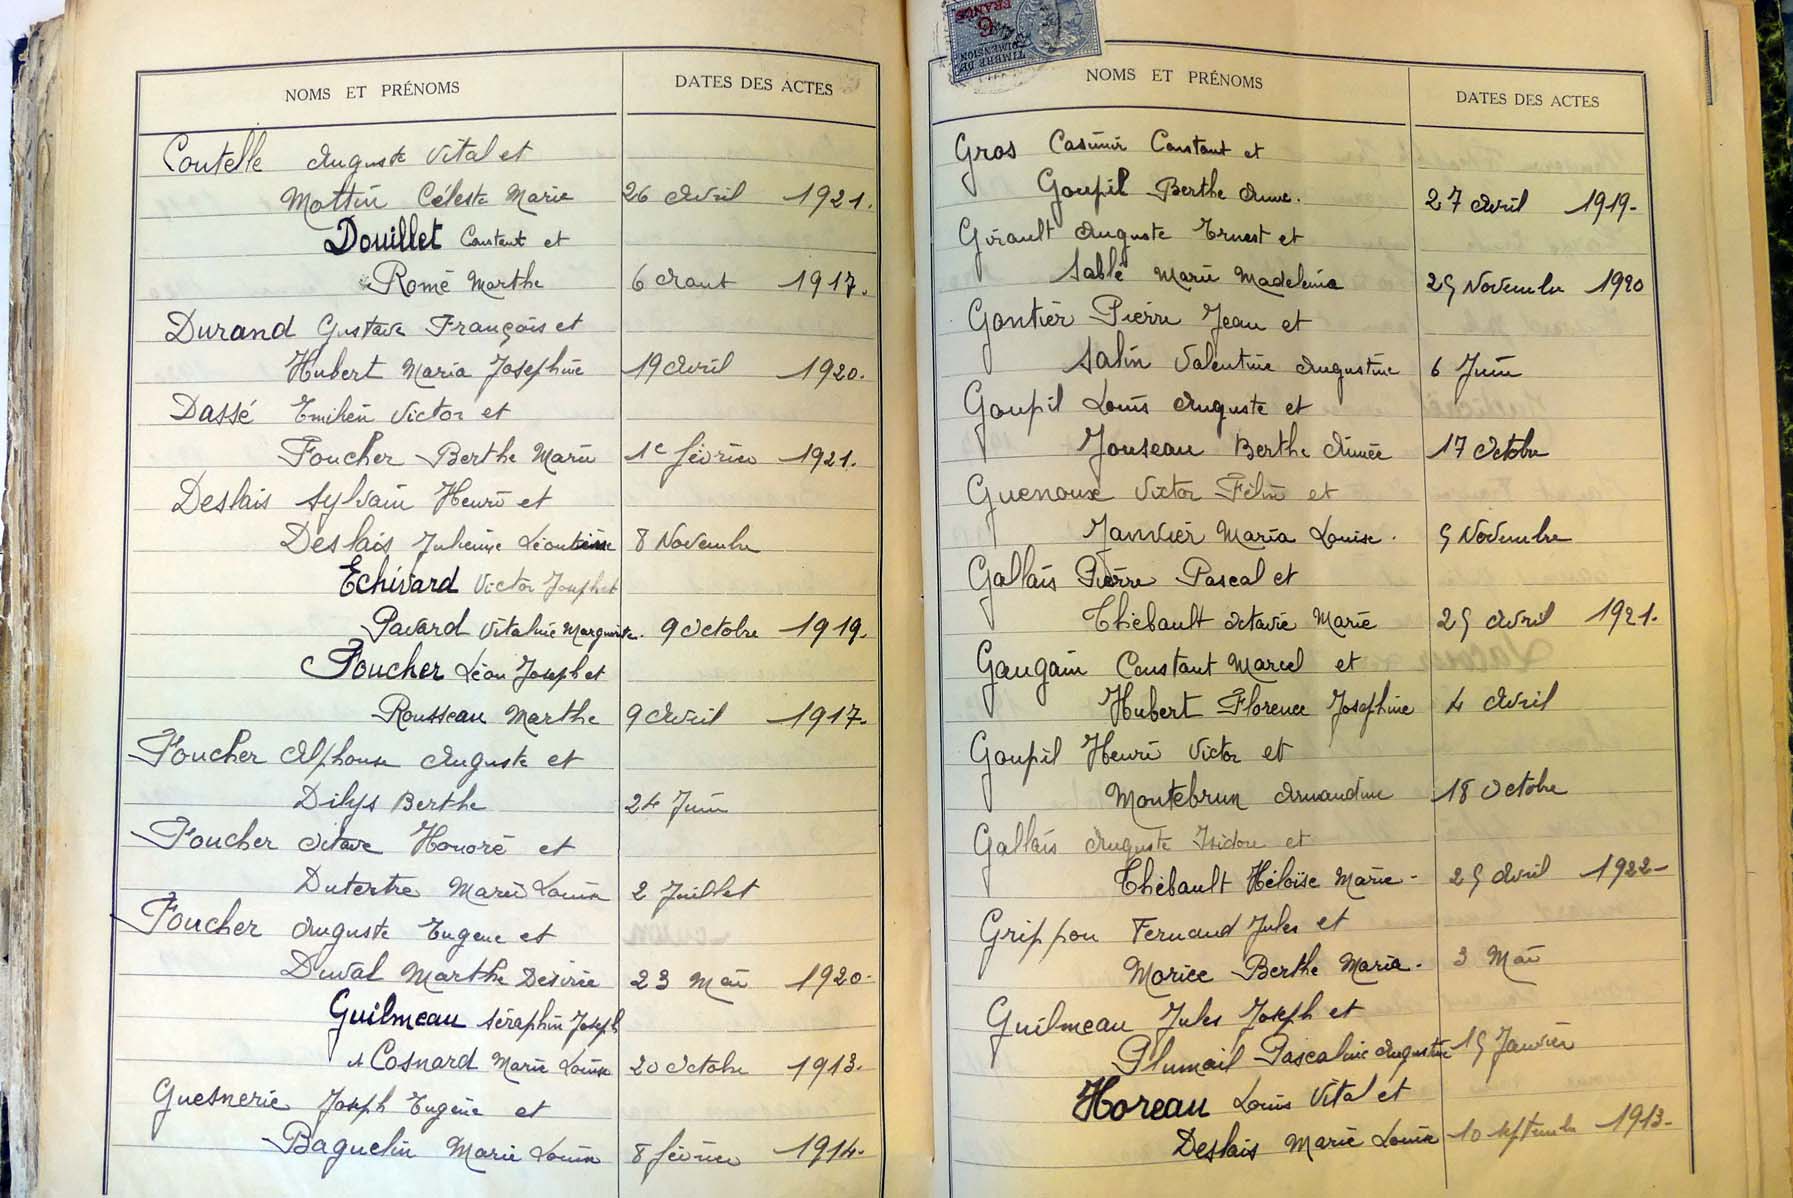 NOMS ET PRÉNOMS DATES DES ACTES
Coutelle Auguste Vital et
Mottin Céleste Marie 26 Avril 1921.
Douillet Constant et
Romé Marthe 6 Aout 1917.
Durand Gustave François et
Hubert Maria Joséphine 19 Avril 1920.
Dassé Emilien Victor et
Foucher Berthe Marie 1e février 1921.
Deslais Sylvain Henri et
Deslais Julienne Léontine 8 Novembre
Echivard Victor Joseph et
Pavard Vitaline Marguerite. 9 Octobre 1919.
Foucher Léon Joseph et
Rousseau Marthe 9 Avril 1917.
Foucher Alphonse Auguste et
Dilys Berthe 24 Juin
Foucher Octave Honoré et
Dutertre Marie Louise 2 Juillet
Foucher Auguste Eugene et
Duval Marthe Désirée 23 Mai 1920.
Guilmeau Séraphin Joseph
et Cosnard Marie Louise 20 Octobre 1913.
Guesnerie Joseph Eugène et
Baguelin Marie Louise 8 février 1914.
TIMBRE DE DIMENSION
6 FRANCS
NOMS ET PRÉNOMS DATES DES ACTES
Gros Casimir Constant et
Goupil Berthe Anne. 27 Avril 1919.
Girault Auguste Ernest et
Sablé Marie Madeleine 25 Novembre 1920
Gontier Pierre Jean et
Salin Valentine Augustine 6 Juin
Goupil Louis Auguste et
Jouseau Berthe Aimée 17 Octobre
Guenoux Victor Félix et
Janvier Maria Louise. 5 Novembre
Gallais Pierre Pascal et
Thébault Octavie Marie 25 Avril 1921.
Gaugain Constant Marcel et
Hubert Florence Joséphine 4 Avril
Goupil Henri Victor et
Montebrun Armandine 18 Octobre
Gallais Auguste Isidore et
Thébault Héloïse Marie. 25 Avril 1922.
Grippon Fernand Jules et
Morice Berthe Maria. 3 Mai
Guilmeau Jules Joseph et
Plumail Pascaline Augustine 15 Janvier
Horeau Louis Vital et
Deslais Marie Louise 10 Septembre 1913.